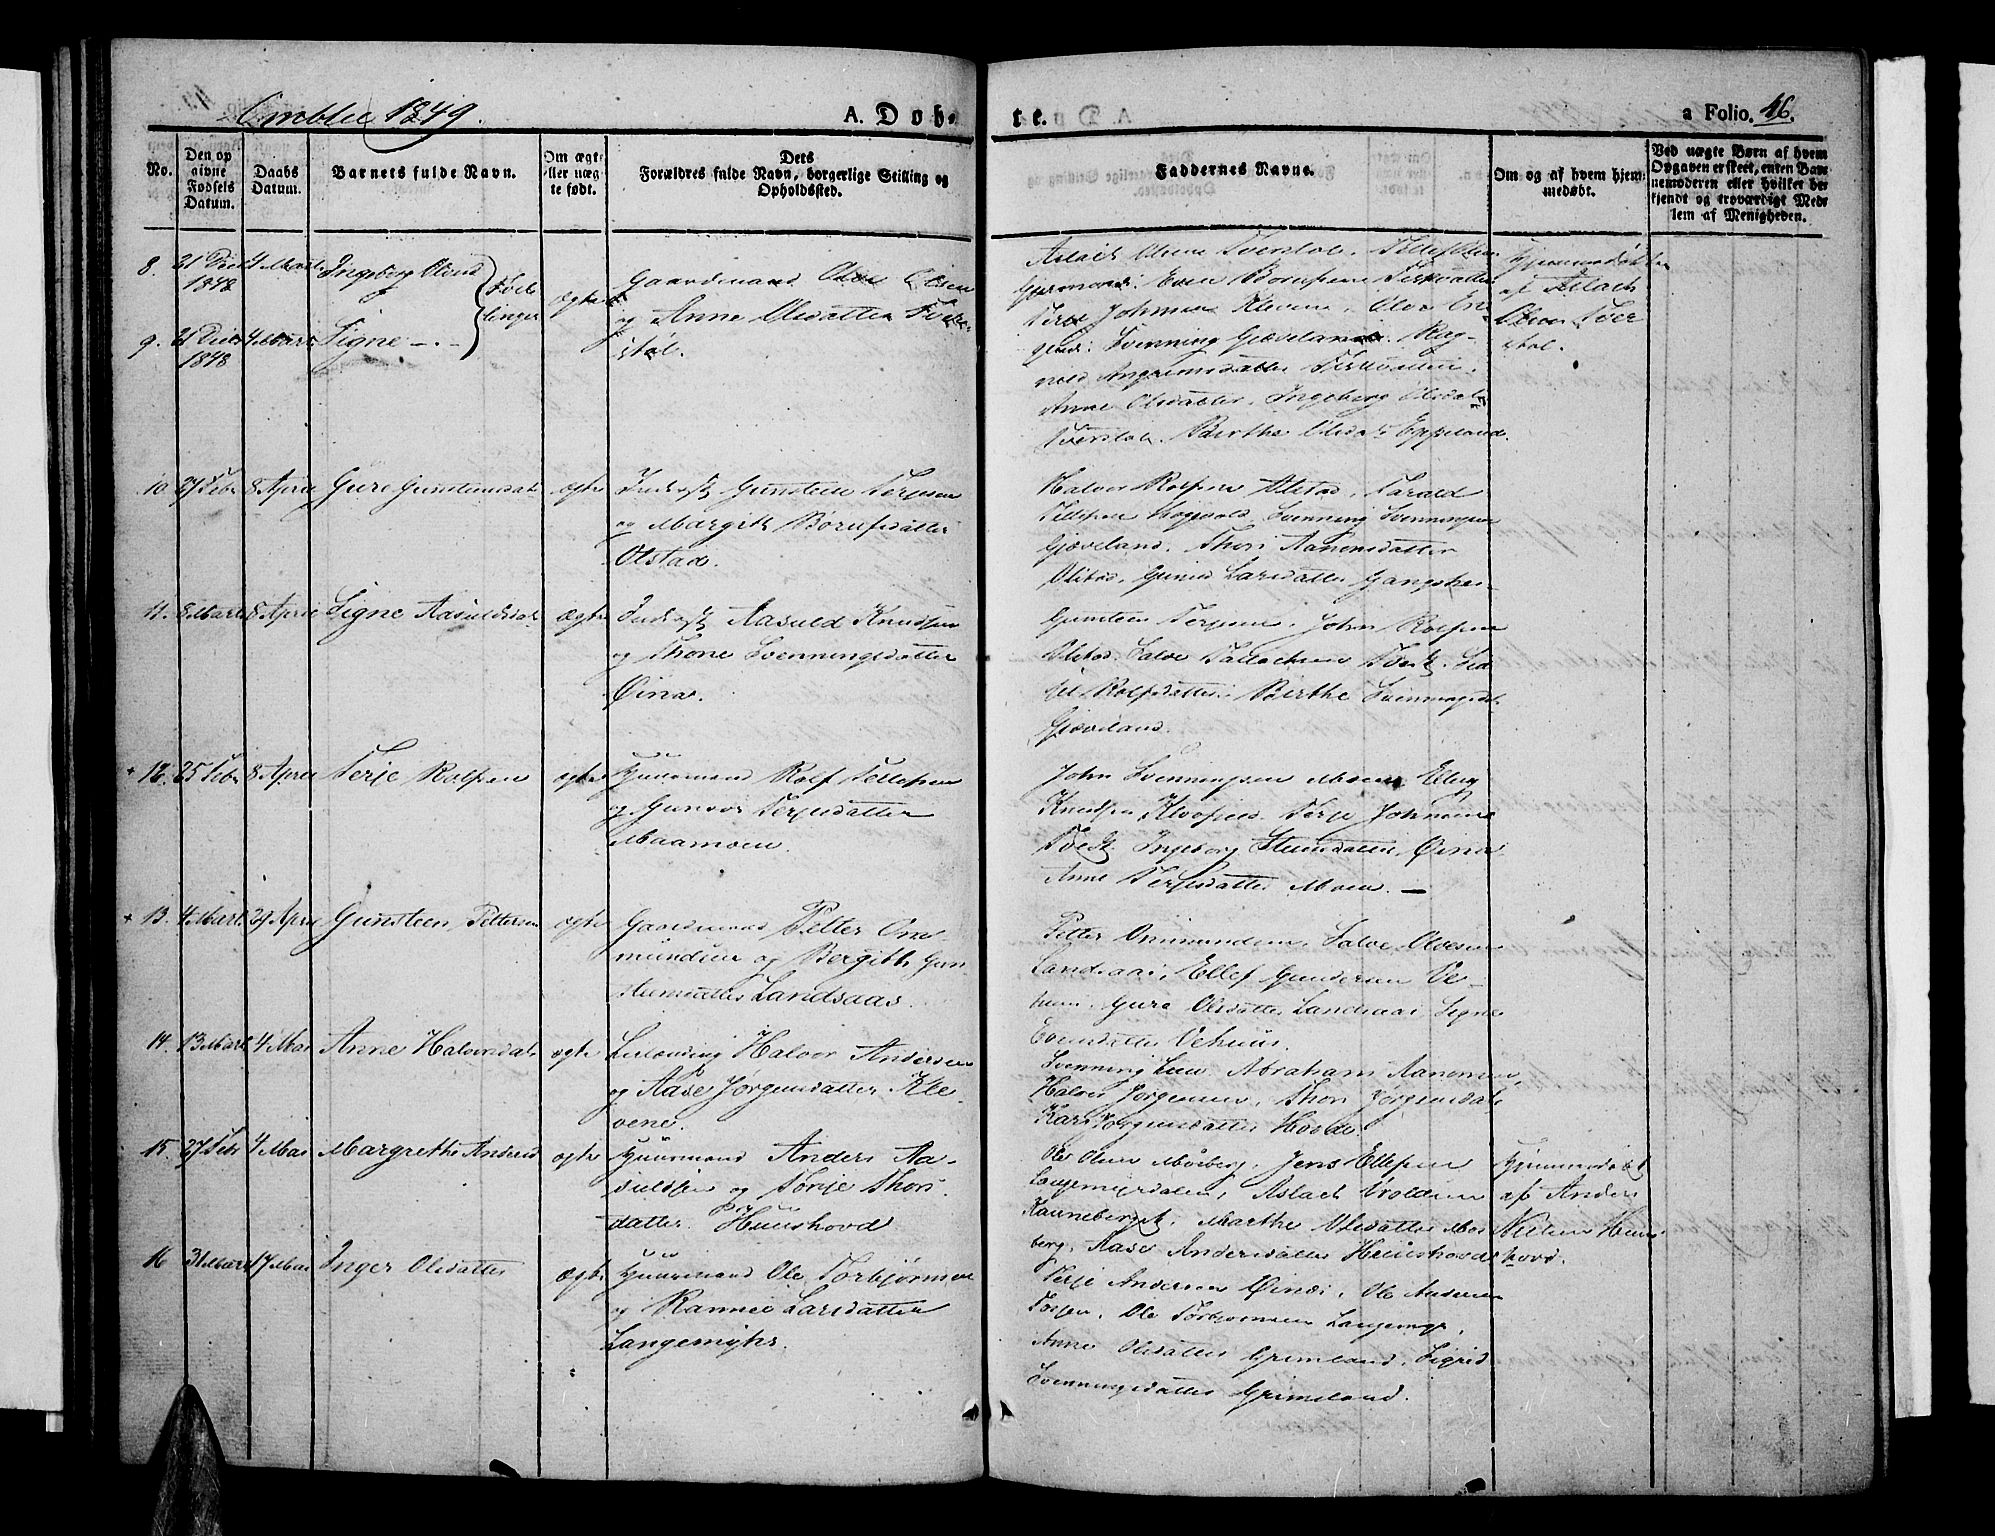 Omblie 1849.
A. Døb-
te.
a Folio. 46.
No.
Den op
givne
Fødsels
Datum.
Daabs
Datum.
Barnets fulde Navn.
Om ægt-
eller uæg-
te født.
Dets
Forældres fulde Navn, borgerlige Stilling og
Opholdssted.
Faddernes Navne.
Om og af hvem hjem-
medøbt.
Ved uægte Børn af hvem
Opgaven er skeet, enten Bar-
nemoderen eller hvilket be-
kjendt og troværdigt Med-
lem af Menigheden.
8. 21 Decb 1848 4 Marts Ingeborg Olsd
9. 21 Decb 1848 4 Marts Signe — . —
Tvil-
linger
ægte
Gaardmand Olsen
og Anne Olsdatter Tver-
støl.
Aslach Olsen Tverstøl. Tellef
Even
Terje Johnsen Kleven. Olve
Svenning Gjæveland. Rag-
nild
Anne Olsdatter. Ingeborg Olsdat.
Tverstøl. Birthe Olsdatr Eppeland.
Hjemmedøbt
af Aslach
Olsen Tver
støl.
10. 27 Febr 8 April Guro Gunsteensdat. ægte
Indrst Gunsteen Terjesen
og Margith Børufsdatter
Olstad.
Halvor Rolfsen Olstad. Tarald
Tellefsen Svenning Svenningsen
Gjæveland. Thori Aanensdatter
Olstad. Gunild Larsdatter
11. 8 Marts 8 April Signe Aasuldsdat. ægte
Indrst Aasuld Knudsen
og Thone Svenningsdatter
Øinæs.
Gunsteen Terjesen. John Rolfsen
Olstad. Salve Tallachsen Tvedt.
Rolfsdatter. Birthe Svenningsdt.
Gjæveland.
+ 12. 25 Febr 8 April Terje Rolfsen ægte
Huusmand Rolf Tellefsen
og Gunvor Terjesdatter
Maamoen.
John Svenningsen Moen, Ellef
Knudsen Terje Johnsen
Tvedt. Ingeborg Steensdatter Øinæs
Anne Terjesdatter Moen. —
+ 13. 4 Marts 29 April Gunsteen Pettersen ægte
Gaardmand Petter Om-
mundsen og Bergith Gun-
steensdatter Landsaas.
Petter Ommundsen, Salve Olvesen
Landsaas, Ellef Gundersen Ve-
huus. Guro Olsdatter Landsaas Signe
Evensdatter Vehuus.
14. 13 Marts 4 Mai Anne Halvorsdat. ægte
Leilænding Halvor Andersen
og Aase Jørgensdatter Kle-
vene.
Svenning Abraham Aanonsen,
Halvor Jørgensen, Thori Jørgensdatr
Kari Jørgensdatter Hovde.
15. 27 Febr 4 Mai Margrethe Andersd ægte
Huusmand Anders Aa-
suldsen og Tørje Thors-
datter. Huushovd
Ole Olsen Mosberg, Jens Ellefsen
Langemyrdalen, Aslach
Marthe Olsdatter Mos
berg, Aase Andersdatter Huushovd
Hjemmedøbt
af Anders
Nielsen Huus
hovd.
16 31 Marts 17 Mai Inger Olsdatter ægte
Huusmand Ole Torbjørnsen
og Rannei Larsdatter
Langemyhr.
Terje Andersen Øinæs, Ole Andersen
Ole Torbjørnsen Langemyr,
Anne Olsdatter Grimeland. Sigrid
Svenningsdatter Grimeland.